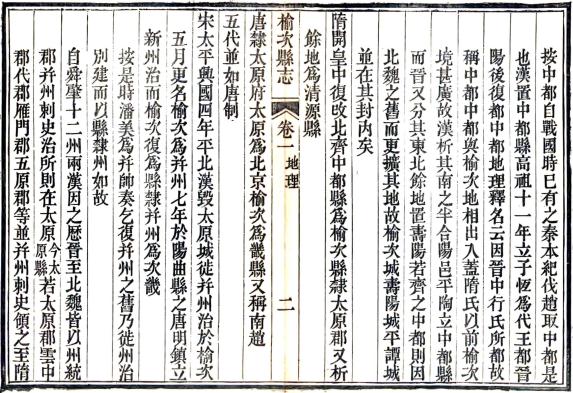 按中都自戰國時已有之秦本紀伐趙取中都是
也漢置中都縣高祖十一年立子恆爲代王都晉
陽後復都中都地理釋名云因晉中行氏所都故
稱中都中都與榆次地相出入蓋隋氏以前榆次
境甚廣故漢析其南之半合陽邑平陶立中都縣
而晉又分其東北餘地置壽陽若齊之中都則因
北魏之舊而更擴其地故榆次城壽陽城平譚城
並在其封內矣
隋開皇中復改北齊中都縣爲榆次縣隸太原郡又析
餘地爲清源縣
榆次縣志
卷一 地理
二
唐隸太原府太原爲北京榆次爲畿縣又稱南趙
五代並如唐制
宋太平興國四年平北漢毀太原城徙并州治於榆次
五月更名榆次爲并州七年於陽曲縣之唐明鎮立
新州治而榆次復爲縣隸并州爲次畿
按是時潘美爲并帥奏乞復并州之舊乃徙州治
別建而以縣隸州如故
自舜肇十二州兩漢因之歷晉至北魏皆以州統
郡并州刺史治所則在太原今太原縣若太原郡雲中
郡代郡雁門郡五原郡等並并州刺史領之至隋